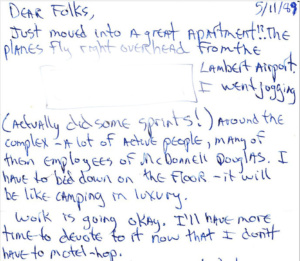 5/11/89
DEAR FOLKS,
JUST MOVED INTO A GREAT APARTMENT!! THE
PLANES FLY RIGHT OVERHEAD FROM THE
LAMBERT AIRPORT.
I WENT JOGGING
(ACTUALLY DID SOME SPRINTS!) AROUND THE
COMPLEX - A LOT OF ACTIVE PEOPLE, MANY OF
THEM EMPLOYEES OF MCDONNELL DOUGLAS. I
HAVE TO BED DOWN ON THE FLOOR - IT WILL
BE LIKE CAMPING IN LUXURY.
WORK IS GOING OKAY. I'LL HAVE MORE
TIME TO DEVOTE TO IT NOW THAT I DON'T
HAVE TO MOTEL-HOP.